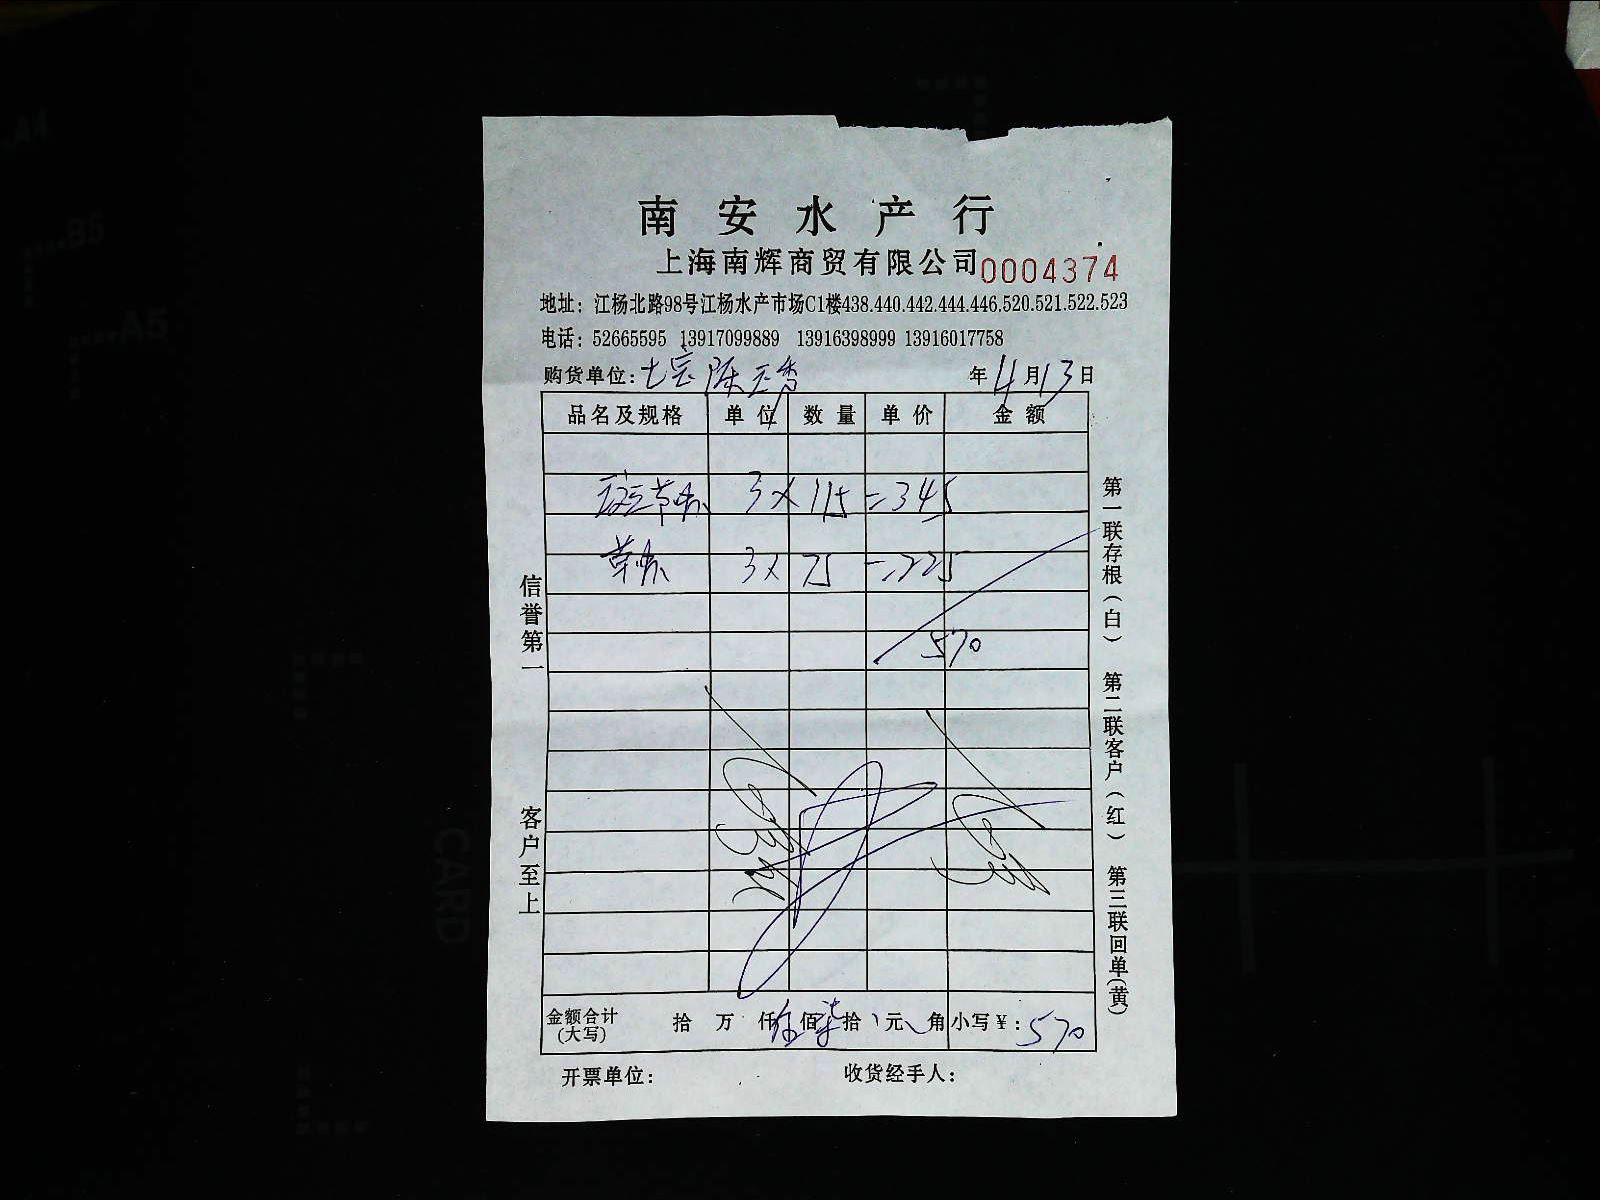 南安水产行
上海南辉商贸有限公司 0004374
地址：江杨北路98号江杨水产市场C1楼438.440.442.444.446.520.521.522.523
电话：52665595 13917099889 13916398999 13916017758
购货单位：七宝陈玉秀 年 4月13日
品名及规格 单位 数量 单价 金额
3×115=345
草 3×75=225
570
金额合计(大写) 拾 万 仟伍佰柒拾 元 角 小写¥：570
开票单位： 收货经手人：
信誉第一 客户至上
第一联存根（白） 第二联客户（红） 第三联回单（黄）
A4
B5
A5
CARD